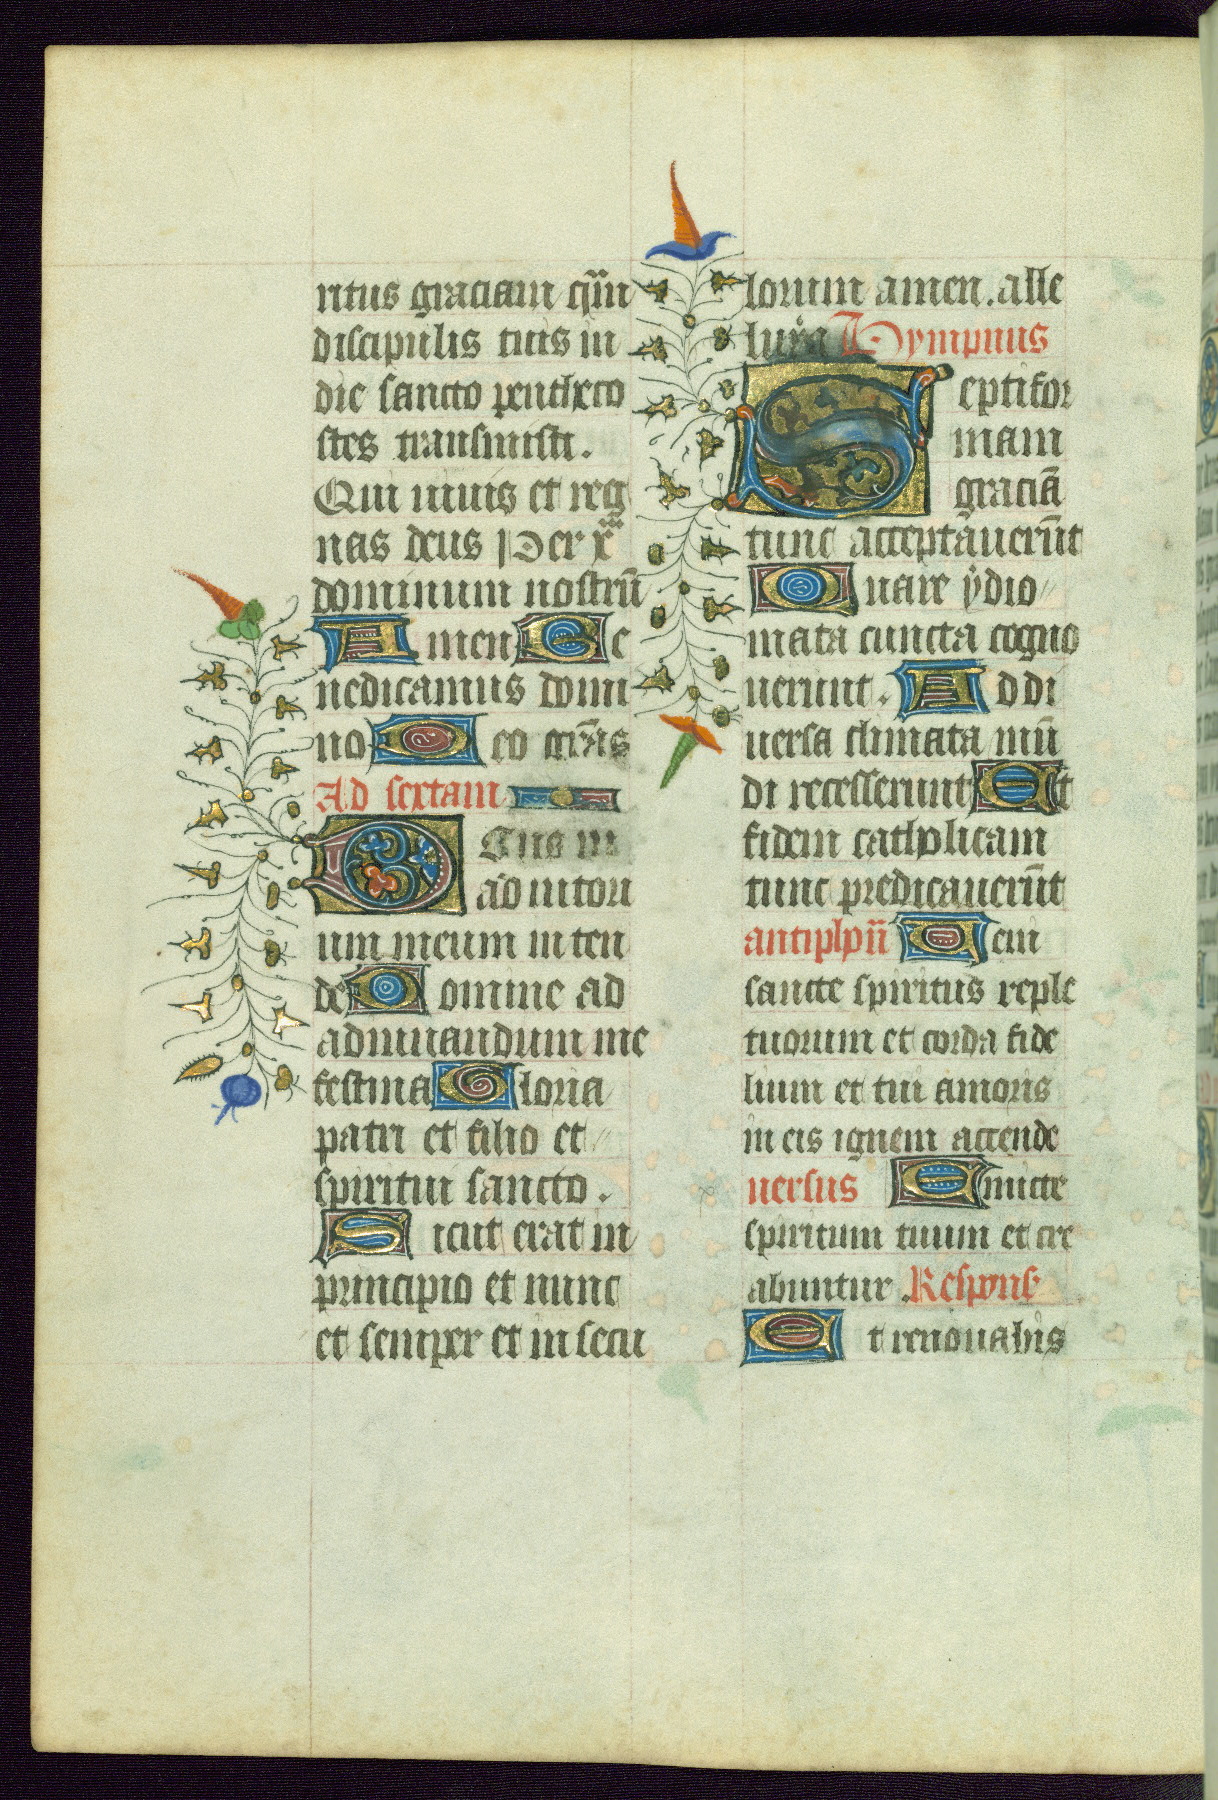 ritus graciam quā
discipulis tuis in
die sancto pentheco
stes transmisti.
Qui uiuis et reg
nas deus Per xm̄
dominum nostrū
Amen Be
nedicamus domi
no Deo gr̄as
Ad sextam
Deus in
adiutori
um meum inten
de Domine ad
adiuuandum me
festina Gloria
patri et filio et
spiritui sancto.
Sicut erat in
principio et nunc
et semper et in secu
lorum amen. alle
luya Hympnus
Septifor
mam
graciā
tunc acceptauerūt
Quare ydio
mata cuncta cogno
uerunt. Ad di
uersa climata mū
di recesserunt Et
fidem catholicam
tunc predicauerūt
antiphn̄ Ueni
sancte spiritus reple
tuorum et corda fide
lium et tui amoris
in eis ignem accende
uersus Emitte
spiritum tuum et cre
abuntur. Respons
Et renouabis